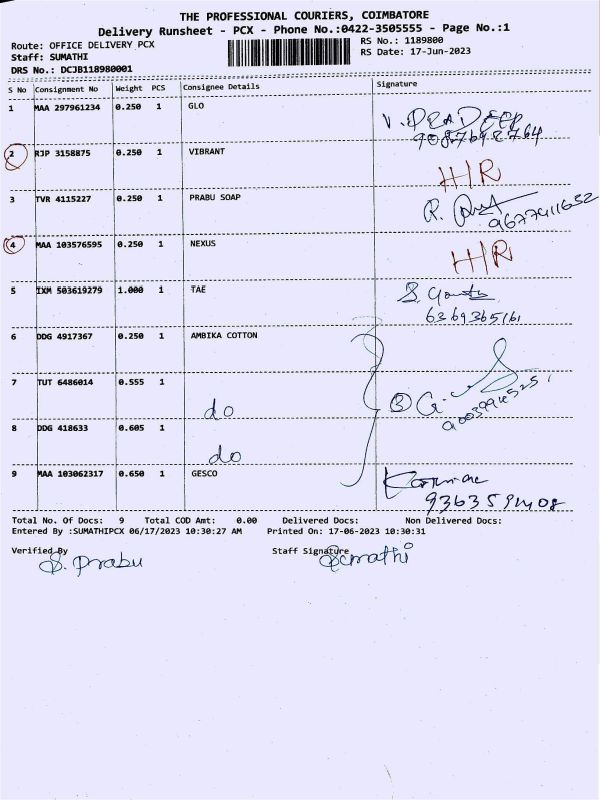 THE PROFESSIONAL COURIERS, COIMBATORE
Delivery Runsheet - PCX - Phone No.:0422-3505555 - Page No.:1
Route: OFFICE DELIVERY PCX
RS No.: 1189800
Staff: SUMATHI
RS Date: 17-Jun-2023
DRS No.: DCJB118980001
S No Consignment No Weight PCS Consignee Details Signature
1 MAA 297961234 0.250 1 GLO
V. PRADEEP
9087698764
2 RJP 3158875 0.250 1 VIBRANT
H/R
3 TVR 4115227 0.250 1 PRABU SOAP
R.
9677411652
4 MAA 103576595 0.250 1 NEXUS
H/R
5 IXM 503619279 1.000 1 TAE
S.
6369365161
6 DDG 4917367 0.250 1 AMBIKA COTTON
7 TUT 6486014 0.555 1
do
③ G.
8 DDG 418633 0.605 1
do
9 MAA 103062317 0.650 1 GESCO
Total No. Of Docs: 9 Total COD Amt: 0.00 Delivered Docs: Non Delivered Docs:
Entered By :SUMATHIPCX 06/17/2023 10:30:27 AM Printed On: 17-06-2023 10:30:31
Verified By Staff Signature
S. Prabu Sumathi